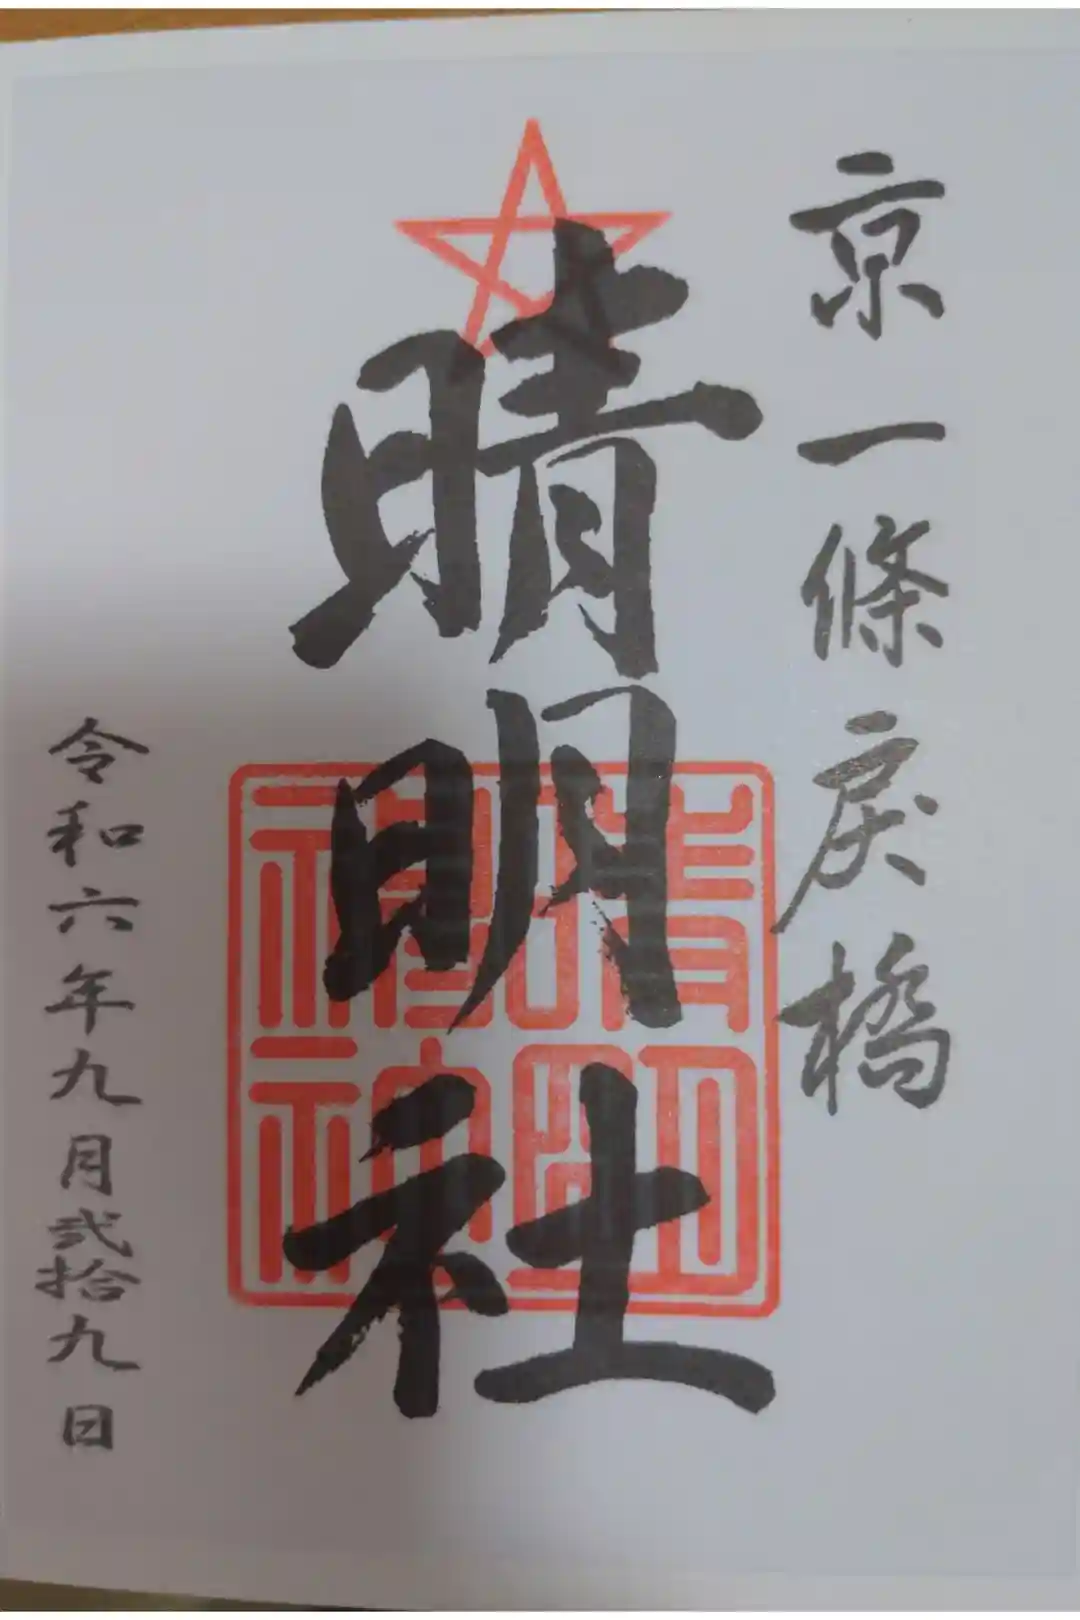 京一條戻橋
晴明社
晴明神社
令和六年九月弐拾九日